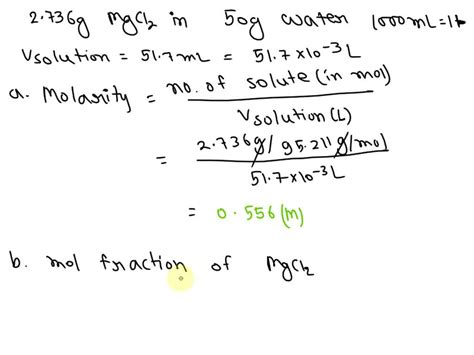 2.736g MgCl2 in 50g water 1000mL=1L
Vsolution = 51.7mL = 51.7x10-3L
a. Molarity = no. of solute (in mol)
Vsolution (L)
= 2.736g/95.211g/mol
51.7x10-3L
= 0.556 (M)
b. mol fraction of MgCl2